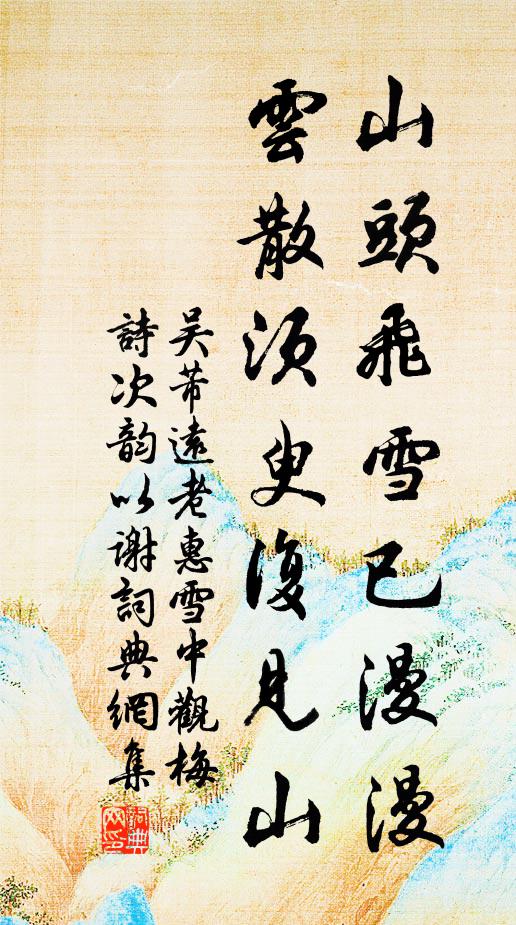 山頭飛雪已漫漫
雲散須臾復見山
吴芾遠老惠雪中觀梅
詩次韵以谢詞典網集
詞典网印